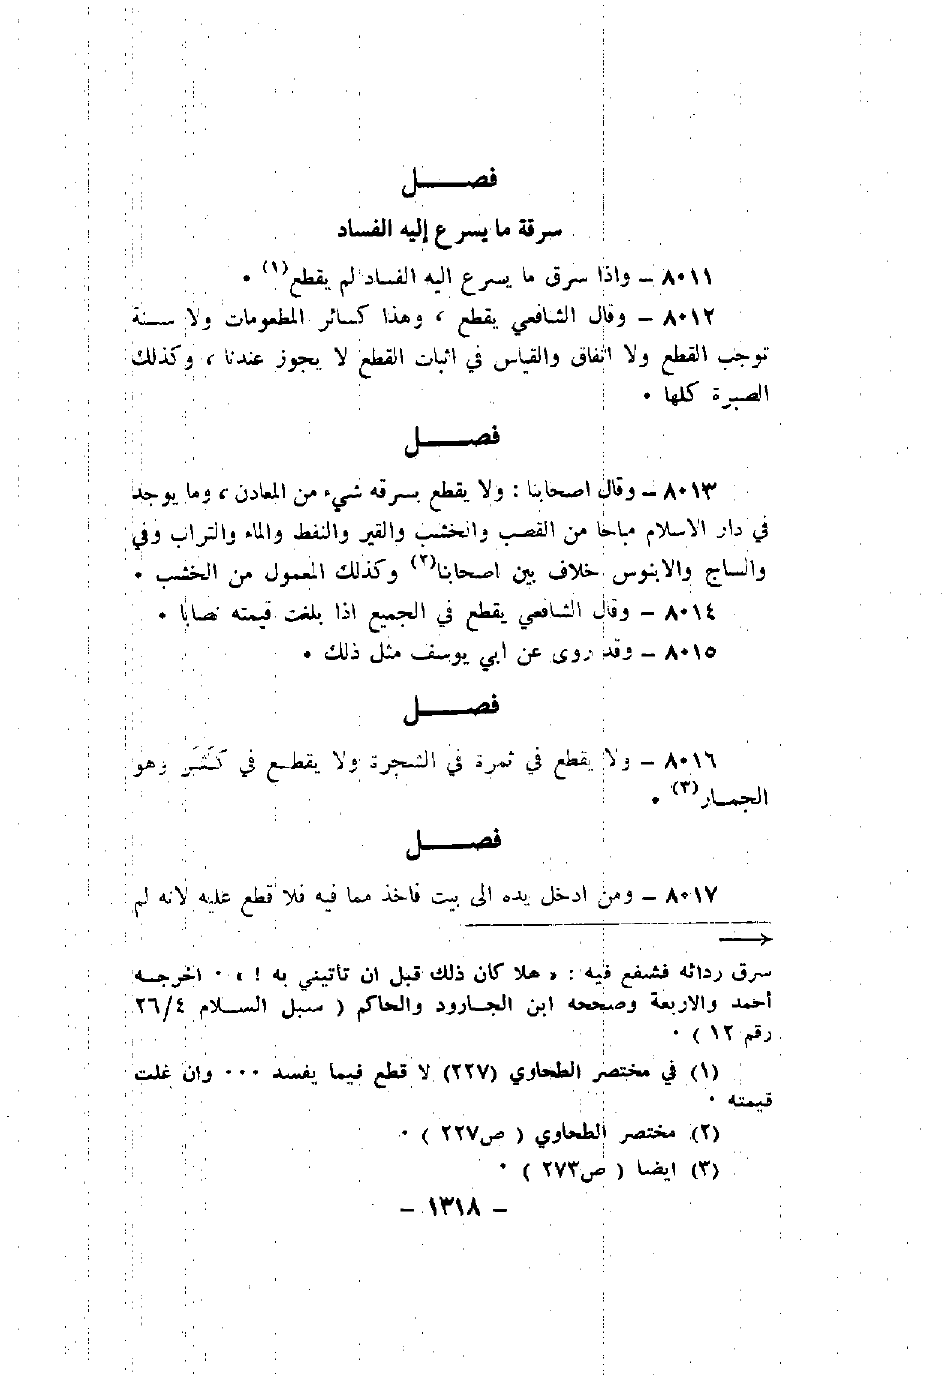 فصــــــل
سرقة ما يسرع إليه الفساد
٨٠١١ – واذا سرق ما يسرع اليه الفساد لم يقطع(١) .
٨٠١٢ – وقال الشافعي يقطع ، وهذا كسائر المطعومات ولا سنة
توجب القطع ولا اتفاق والقياس في اثبات القطع لا يجوز عندنا ، وكذلك
الصبرة كلها .
فصــــــل
٨٠١٣ – وقال اصحابنا : ولا يقطع بسرقه شيء من المعادن ، وما يوجد
في دار الاسلام مباحا من القصب والخشب والقير والنفط والماء والتراب وفي
والساج والابنوس خلاف بين اصحابنا(٢) وكذلك المعمول من الخشب .
٨٠١٤ – وقال الشافعي يقطع في الجميع اذا بلغت قيمته نصابا .
٨٠١٥ – وقد روى عن ابي يوسف مثل ذلك .
فصــــــل
٨٠١٦ – ولا يقطع في ثمرة في الشجرة ولا يقطــع في كَثَـَر وهو
الجمــار(٣) .
فصــــــل
٨٠١٧ – ومن ادخل يده الى بيت فاخذ مما فيه فلا قطع عليه لانه لم
سرق ردائه فشفع فيه : « هلا كان ذلك قبل ان تأتيني به ! » . اخرجــه
أحمد والاربعة وصححه ابن الجــارود والحاكم ( سبل الســلام ٢٦/٤
رقم ١٢ ) .
(١) في مختصر الطحاوي (٢٢٧) لا قطع فيما يفسد ... وان غلت
قيمته .
(٢) مختصر الطحاوي ( ص٢٢٧ ) .
(٣) ايضا ( ص٢٧٣ ) .
– ١٣١٨ –